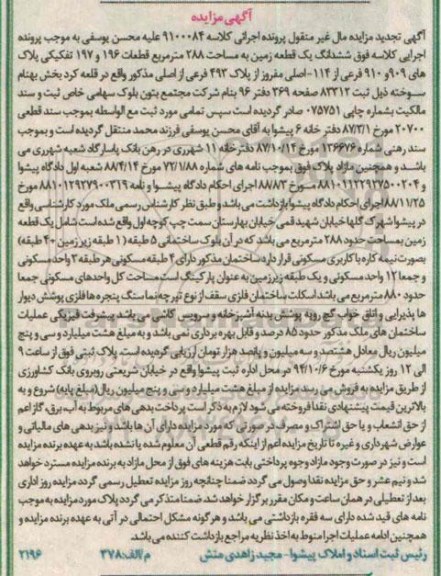 آگهی مزایده
آگهی تجدید مزایده مال غیر منقول پرونده اجرائی کلاسه ۹۱۰۰۰۸۴ علیه محسن یوسفی به موجب پرونده
اجرایی کلاسه فوق ششدانگ یک قطعه زمین به مساحت ۲۸۸ مترمربع قطعات ۱۹۶ و ۱۹۷ تفکیکی پلاک
های ۹۰۹و ۹۱۰ فرعی از ۱۱۴-اصلی مفروز از پلاک ۴۹۲ فرعی از اصلی مذکور واقع در قلعه کرد بخش بهنام
سوخته ذیل ثبت ۸۳۳۱۲ صفحه ۳۶۹ دفتر ۹۶ بنام شرکت مجتمع بتون بلوک سهامی خاص ثبت و سند
مالکیت بشماره چاپی ۰۷۵۷۵۱ صادر گردیده است سپس تمامی مورد ثبت مع الواسطه بموجب سند قطعی
۲۰۷۰۰ مورخ ۸۷/۳/۱ دفتر خانه ۶ پیشوا به آقای محسن یوسفی فرزند محمد منتقل گردیده است و بموجب
سند رهنی شماره ۱۳۶۶۷۶ مورخ ۸۷/۱۰/۱۴ دفترخانه ۱۱ شهرری در رهن بانک پاسارگاد شعبه شهرری می
باشد و همچنین مازاد پلاک فوق بموجب نامه های شماره ۷۲/۱/۸۸ مورخ ۸۸/۴/۱۴ شعبه اول دادگاه پیشوا
و ۸۸۱۰۰۱۱۲۲۹۳۷۵۰۰۲۰۴ مورخ ۸۸/۸/۳ اجرای احکام دادگاه پیشوا و نامه ۸۸۱۰۱۲۹۳۷۹۰۰۳۱۹ مورخ
۸۸/۱۱/۲۵ اجرای احکام دادگاه پیشوا بازداشت می باشد و طبق نظر کارشناس رسمی ملک مورد کارشناسی واقع
در پیشوا شهرک گلها خیابان شهید قمی خیابان بهارستان سمت چپ کوچه اول واقع شده است شامل یک قطعه
زمین بمساحت حدود ۲۸۸ مترمربع می باشد که در آن بلوک ساختمانی ۵ طبقه (۱ طبقه زیر زمین ۴۰ طبقه)
بصورت نیمه کاره با کاربری مسکونی قرار دارد ساختمان مذکور دارای ۴ طبقه مسکونی هر طبقه ۳ واحد مسکونی
و جمعا ۱۲ واحد مسکونی و یک طبقه زیرزمین به عنوان پارکینگ است مساحت کل واحدهای مسکونی جمعا
حدود ۸۸۰ مترمربع می باشد اسکلت ساختمان فلزی سقف از نوع تیرچه نماسنگ پنجره ها فلزی پوشش دیوار
ها پذیرایی و اتاق خواب گچ رویه پوشش بدنه آشپزخانه و سرویس کاشی می باشد پیشرفت فیزیکی عملیات
ساختمان های ملک مذکور حدود ۸۵ درصد و قابل بهره برداری نمی باشد و به مبلغ هشت میلیارد و سی و پنج
میلیون ریال معادل هشتصد و سه میلیون و پانصد هزار تومان ارزیابی گردیده است. پلاک ثبتی فوق از ساعت ۹
الی ۱۲ روز یکشنبه مورخ ۹۴/۱۰/۶ در محل اداره ثبت پیشوا واقع در خیابان شریعتی روبروی بانک کشاورزی
از طریق مزایده به فروش می رسد مزایده از مبلغ هشت میلیارد و سی و پنج میلیون ریال (مبلغ پایه) شروع و به
بالاترین قیمت پیشنهادی نقدا فروخته می شود لازم به ذکر است پرداخت بدهی های مربوط به آب، برق، گاز اعم
از حق انشعاب و یا حق اشتراک و مصرف در صورتی که مورد مزایده دارای آن ها باشد و نیز بدهی های مالیاتی و
عوارض شهرداری و غیره تا تاریخ مزایده اعم از اینکه رقم قطعی آن معلوم شده یا نشده باشد به عهده برنده مزایده
است و نیز در صورت وجود مازاد وجوه پرداختی بابت هزینه های فوق از محل مازاد به برنده مزایده مسترد خواهد
شد و نیم عشر و حق مزایده نقدا وصول می گردد ضمنا چنانچه روز مزایده تعطیل رسمی گردد مزایده روز اداری
بعد از تعطیلی در همان ساعت و مکان مقرر برگزار خواهد شد. ضمنا متذکر می گردد پلاک مورد مزایده به موجب
نامه های قید شده دارای سه فقره بازداشتی می باشد و هر گونه مشکل احتمالی در آتی به عهده برنده مزایده و
همچنین ادامه عملیات اجرا منوط به اخذ نظریه مراجع بازداشت کننده می باشد.
رئیس ثبت اسناد و املاک پیشوا- مجید زاهدی منش م/الف:۳۷۸ ۲۱۹۶